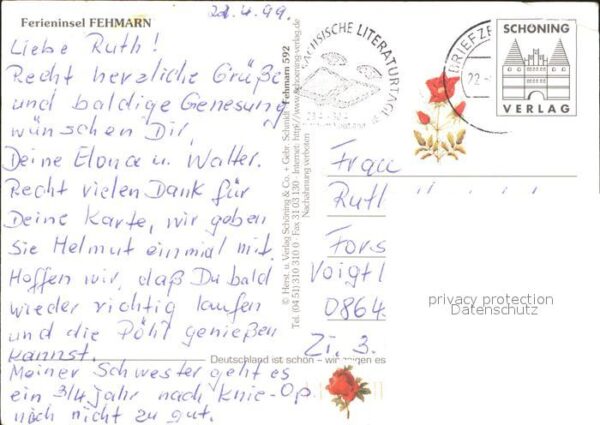 Ferieninsel FEHMARN
21.4.99.
Liebe Ruth!
Recht herzliche Grüße
und baldige Genesung
wünschen Dir,
Deine Elona u. Walter.
Recht vielen Dank für
Deine Karte, wir geben
sie Helmut einmal mit.
Hoffen wir, daß Du bald
wieder richtig laufen
und die Pöhl genießen
kannst.
Meiner Schwester geht es
ein 3/4 Jahr nach Knie-Op.
noch nicht zu gut.
© Herst. u. Verlag Schöning & Co. + Gebr. Schmidt Fehmarn 592
Tel. (04 51) 310 310 0 · Fax 31 03 130 · Internet: http://www.schoening-verlag.de
Nachahmung verboten
SÄCHSISCHE LITERATURTAGE
BRIEFZE
22.
SCHÖNING
VERLAG
Frau
Ruth
Fors
Voigtl
0864
Zi. 3.
privacy protection
Datenschutz
Deutschland ist schön – wir zeigen es